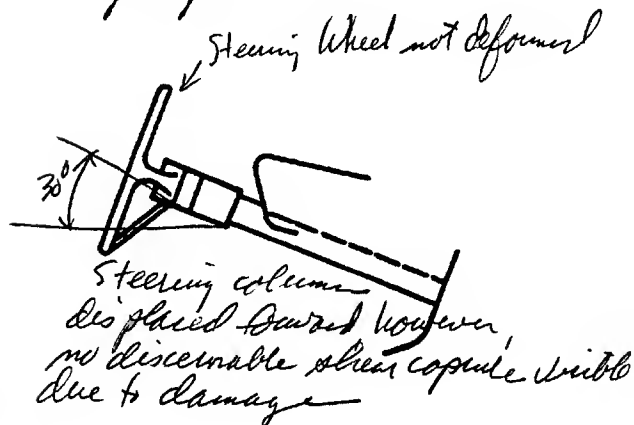 Steering Wheel not deformed
30°
Steering column
displaced forward however,
no discernable shear capsule visible
due to damage